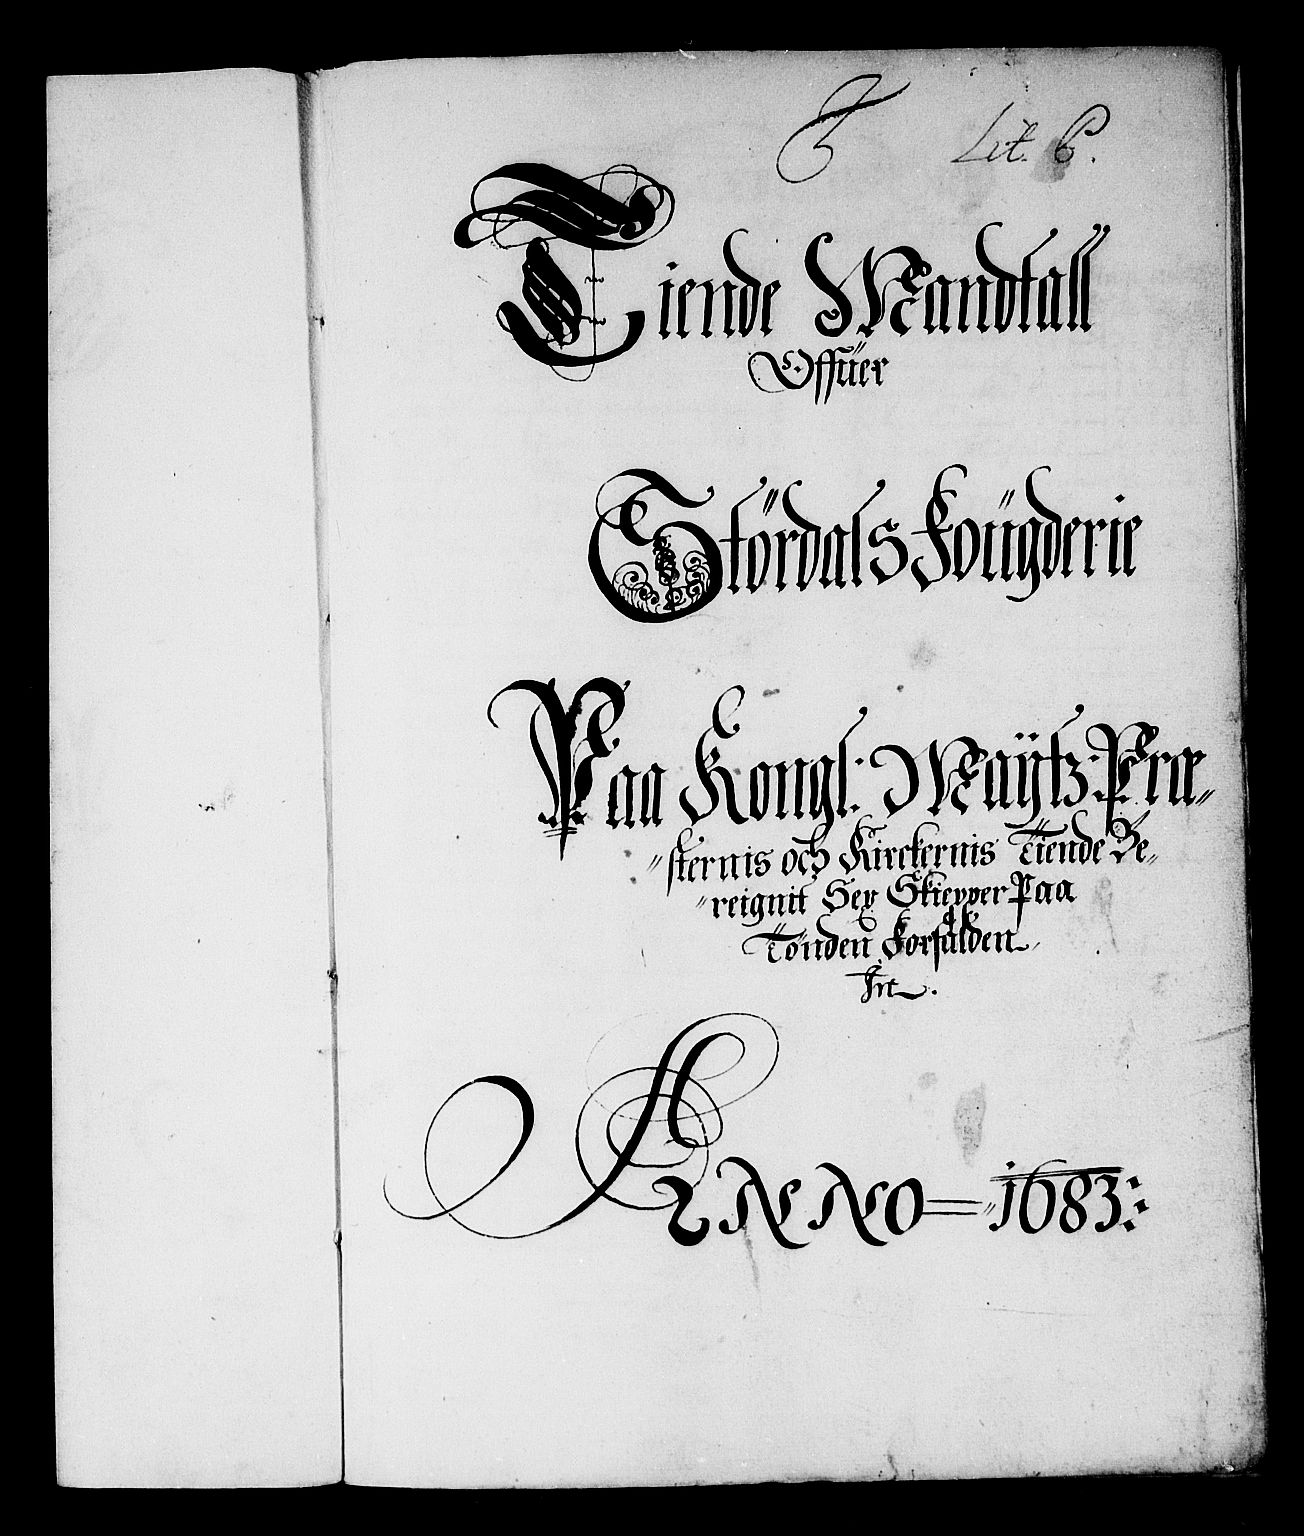 Lit. C.
Tiende Mandtall
Offüer
Stördals Foügderie
Paa Kongl: Maÿtz: Præ=
=sternis och Kirckernis Tiende Be=
=reignit Sex Skiepper Paa
Tønden Forfalden
ANNO = 1683: